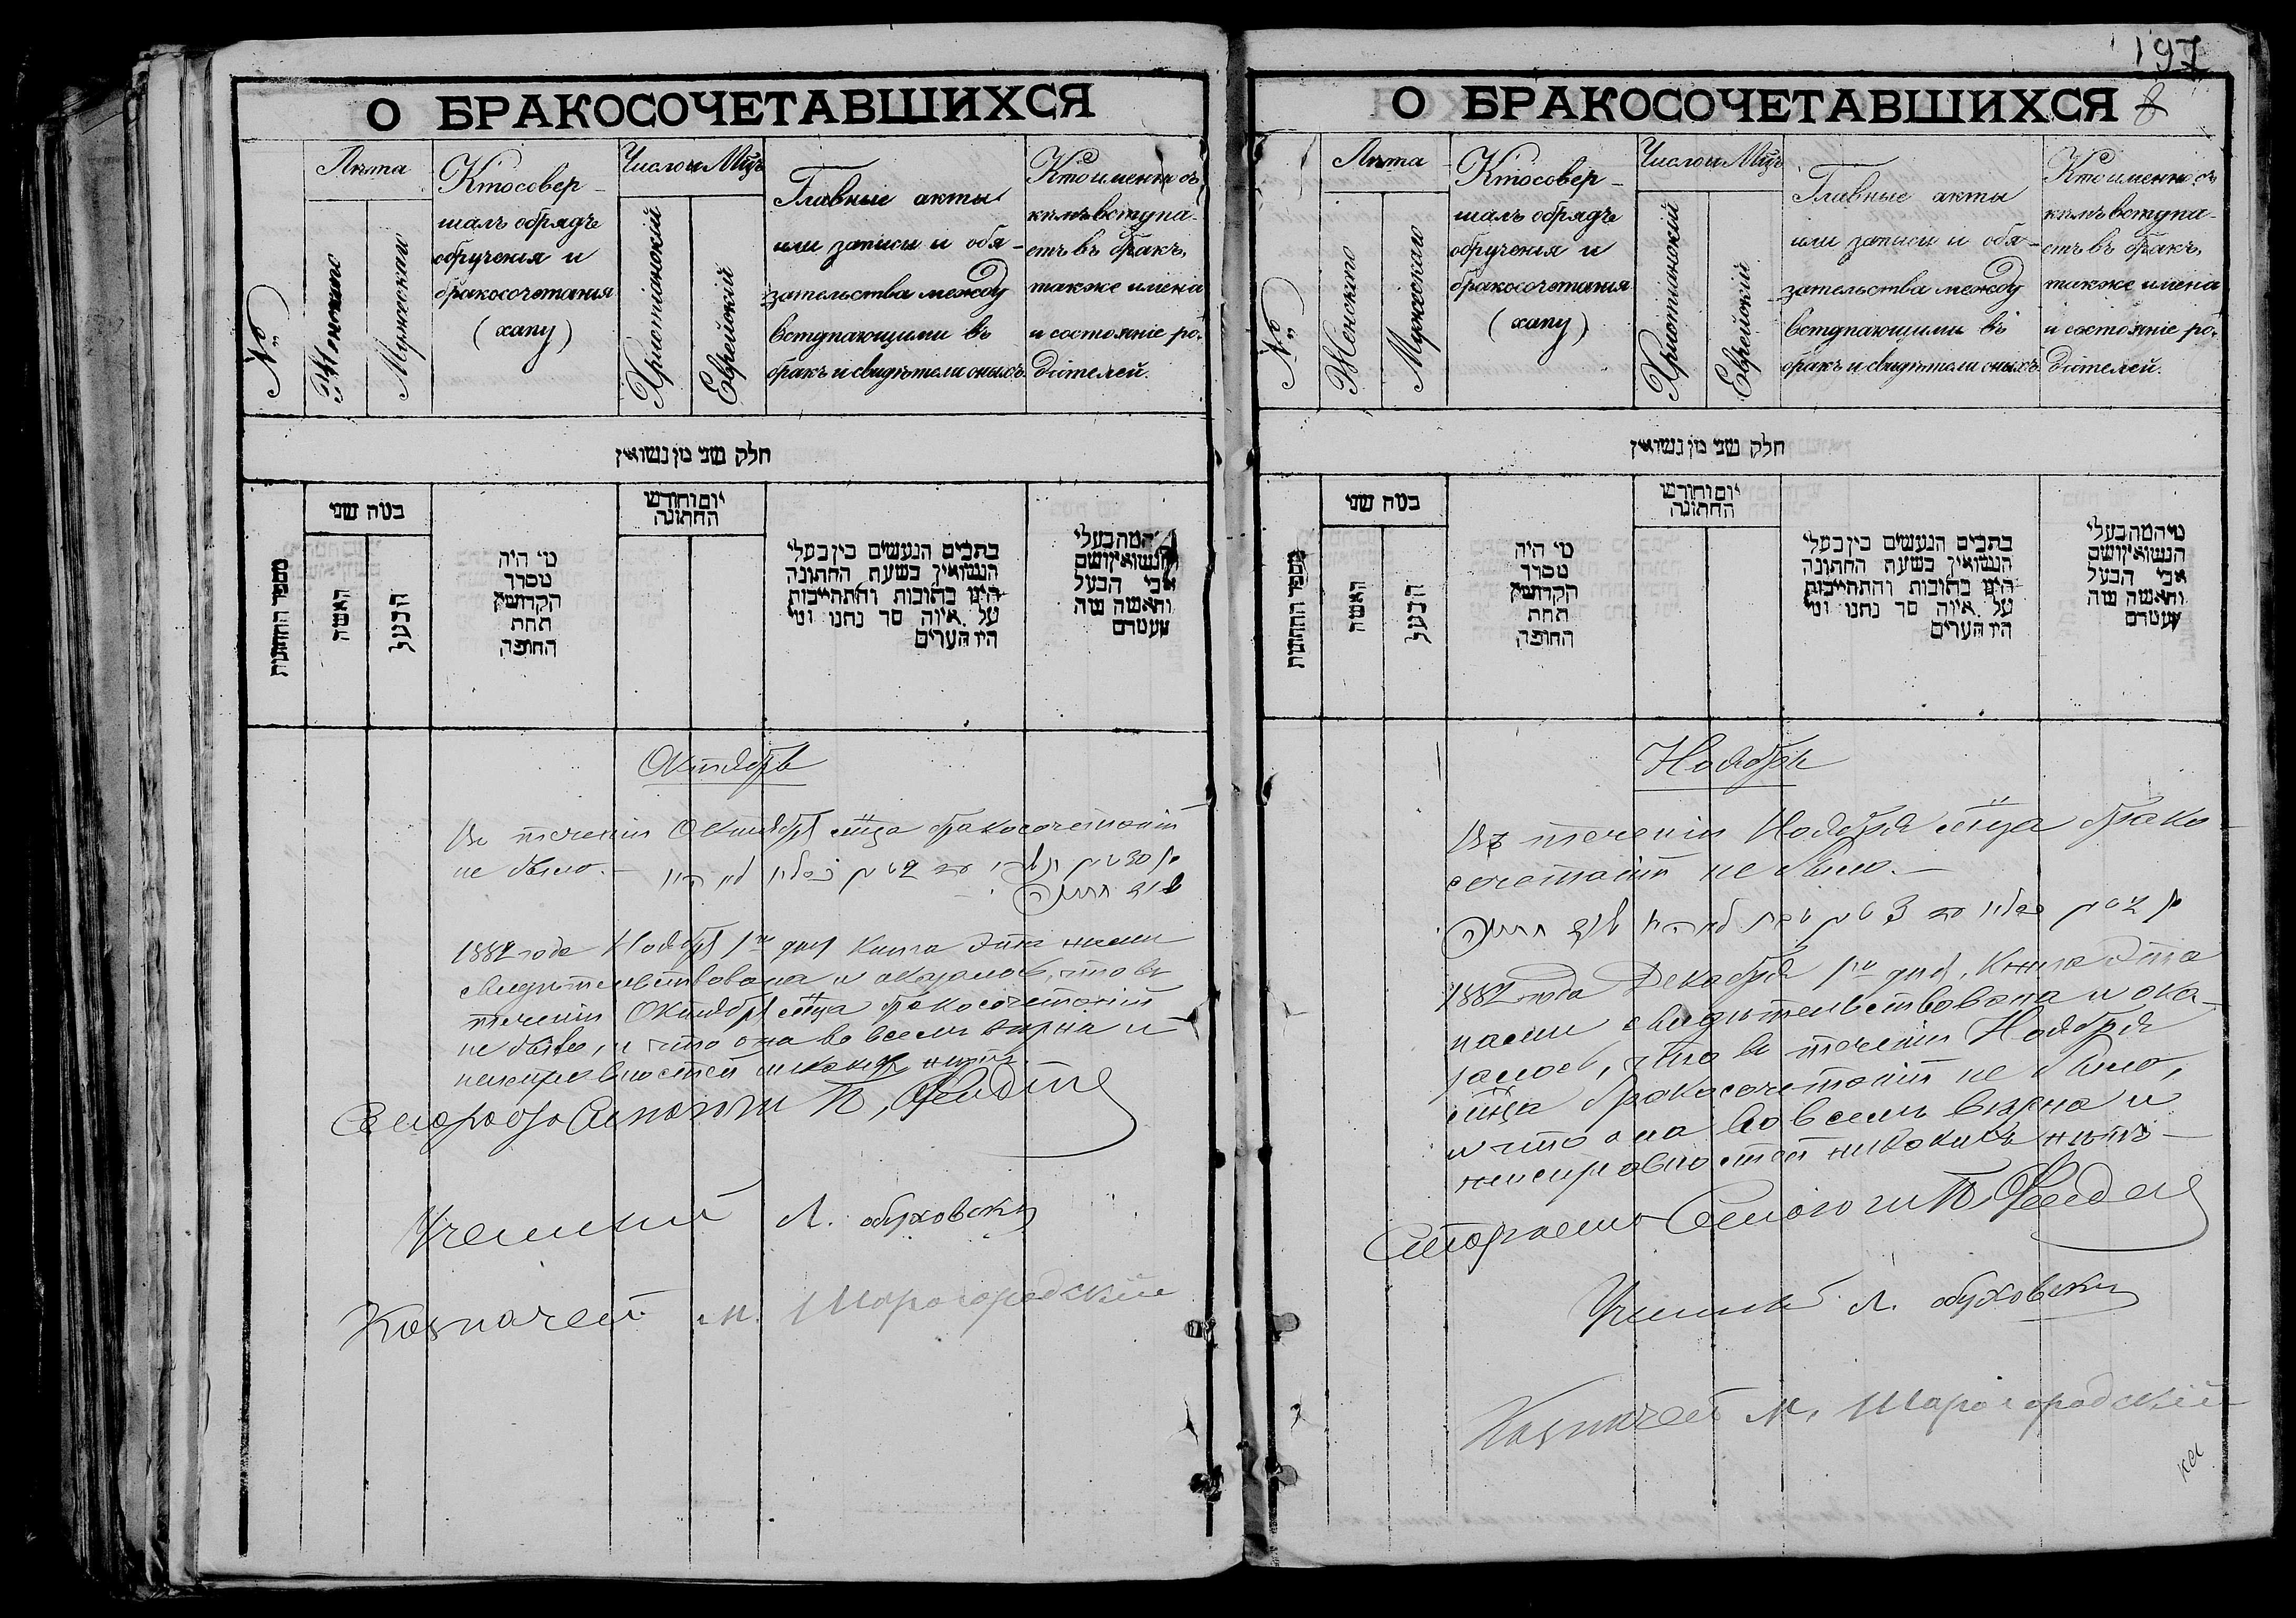 О БРАКОСОЧЕТАВШИХСЯ
№
Лѣта
Женскаго
Мужескаго
Кто совер-
шалъ обрядъ
обрученія и
бракосочетанія
(хапу)
Число и Мѣц
Христіанскій
Еврейскій
Главные акты
или записи и обя-
зательства между
вступающими въ
бракъ и свидѣтели оныхъ.
Кто именно съ
кѣмъ вступа-
етъ въ бракъ,
также имена
и состояніе ро-
дителей.
חלק שני מן נשואין
מספר החתונות
כמה שני
האשה
הבעל
מי היה
מסדר
הקדושין
תחת
החופה
יום וחודש
החתונה
כתבים הנעשים בין בעלי
הנשואין בשעת החתונה
היינו כתובות והתחייבות
על איזה סך נתנו ומי
היו העדים
המה בעלי
הנשואין ושם
אבי הבעל
והאשה ומה
מעמדם
Октябрь
Въ теченіи Октября мѣца бракосочетаній
не было.—
1882 года Ноября 1го дня Книга эта нами
свидѣтельствована и оказалось, что въ
теченіи Октября мѣца бракосочетаній
не было, и что она во всемъ вѣрна и
неисправностей никакихъ нѣтъ.
Ученый Л. Обуховскій
Казначей М. Шарогородскій
197
8
О БРАКОСОЧЕТАВШИХСЯ
№
Лѣта
Женскаго
Мужескаго
Кто совер-
шалъ обрядъ
обрученія и
бракосочетанія
(хапу)
Число и Мѣц
Христіанскій
Еврейскій
Главные акты
или записи и обя-
зательства между
вступающими въ
бракъ и свидѣтели оныхъ.
Кто именно съ
кѣмъ вступа-
етъ въ бракъ,
также имена
и состояніе ро-
дителей.
חלק שני מן נשואין
מספר החתונות
כמה שני
האשה
הבעל
מי היה
מסדר
הקדושין
תחת
החופה
יום וחודש
החתונה
כתבים הנעשים בין בעלי
הנשואין בשעת החתונה
היינו כתובות והתחייבות
על איזה סך נתנו ומי
היו העדים
מי המה בעלי
הנשואין ושם
אבי הבעל
והאשה ומה
מעמדם
Ноябрь
Въ теченіи Ноября мѣца брако
сочетаній не было.—
1882 года Декабря 1го дня, Книга эта
нами свидѣтельствована и ока-
залось, что въ теченіи Ноября
мѣца бракосочетаній не было,
и что она во всемъ вѣрна и
неисправностей никакихъ нѣтъ—
Ученый Л. Обуховскій
Казначей М. Шарогородскій